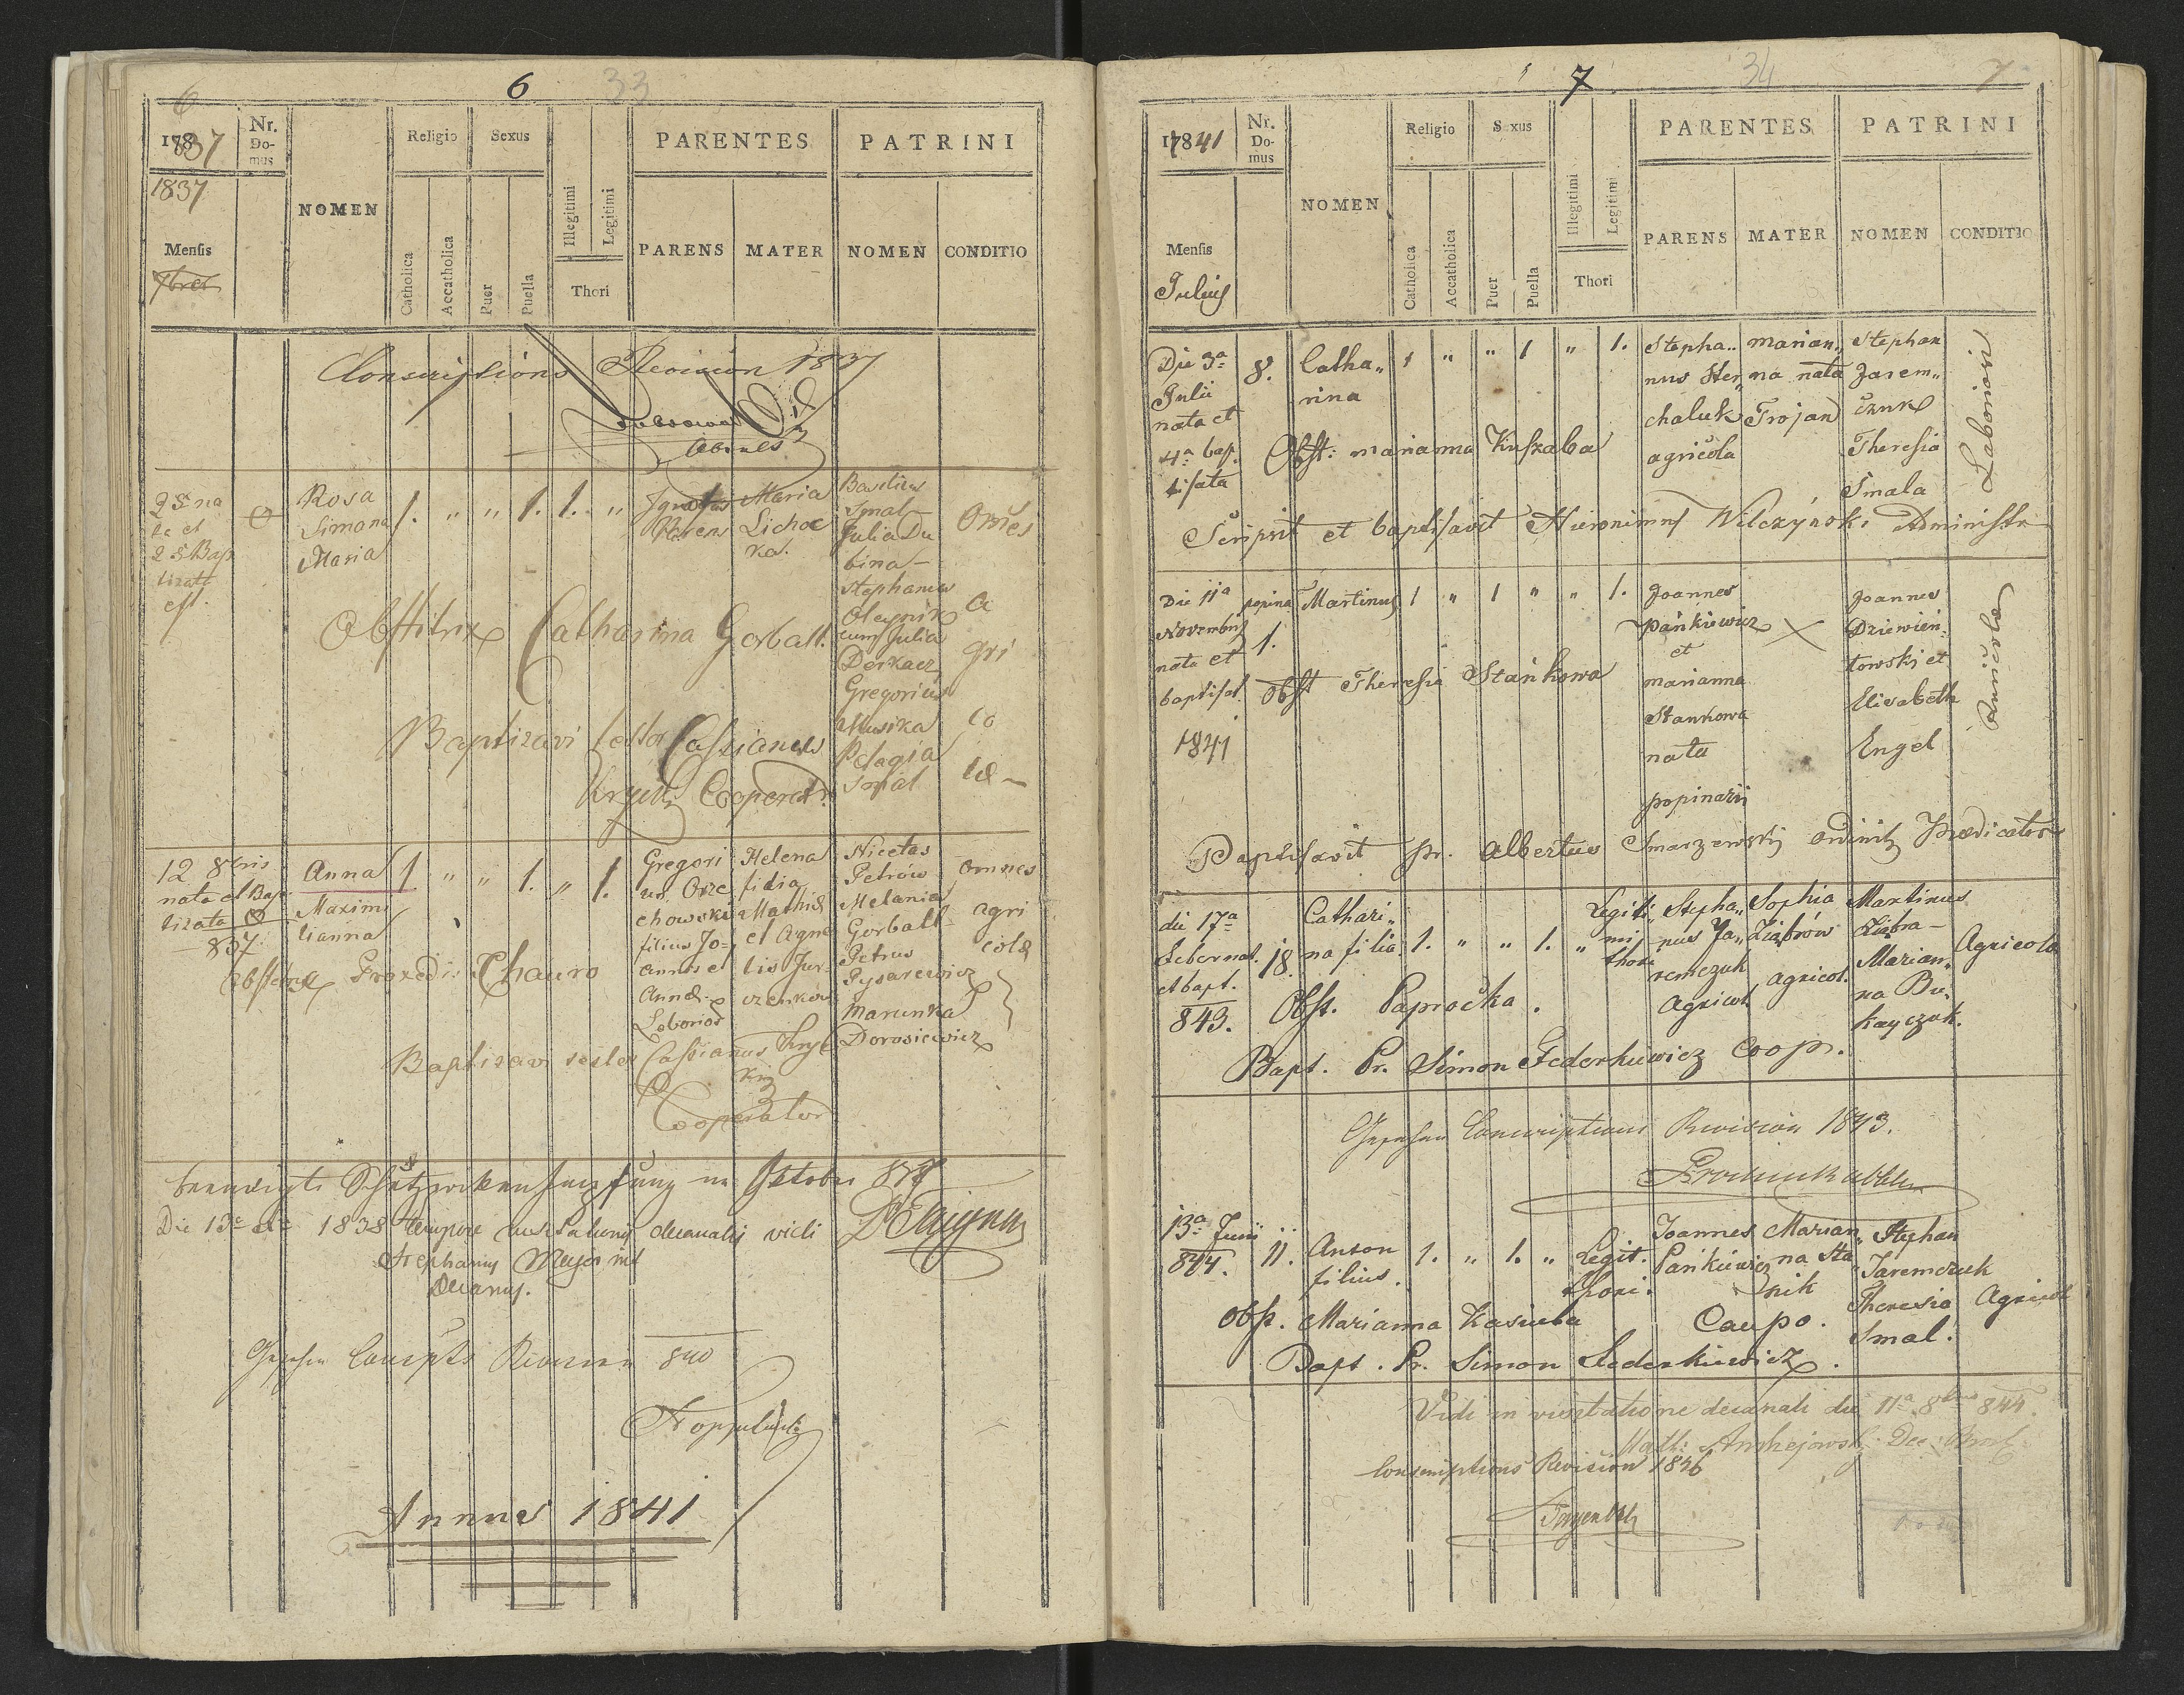 6
6
33
17837
Nr. Domus
NOMEN
Religio
Sexus
PARENTES
PATRINI
1837
Mensis
7bris
Catholica
Accatholica
Puer
Puella
Illegitimi
Legitimi
Thori
PARENS
MATER
NOMEN
CONDITIO
Conscriptions Revision 1837
25 na
ta et
25 Bap
tizata
est.
Rosa
Simona
Maria
1. " " 1. 1. "
Ignotus
Parens
Maria
Lichoc
ka.
Basilius
Smal
Julia Du
bina –
Stephanus
Oleynik
cum Julia
Derkacz
Gregorius
Musika
Pelagia
Smal
Omnes
a
gri
co
lae –
Obstitrix Catharina Gorbatt.
Baptizavi testor Cassianus
Cooperator
12 8bris
nata et Bap
tizata
837.
Anna
Maximi
lianna
1 " " 1. " 1.
Gregori
us Orze
chowski
filius Jo-
annis et
Annae
Laborios
Helena
filia
Mathiae
et Agne
tis Jur-
czenkow
Nicetas
Petrów
Melania
Gorbatt
Petrus
Pysarewicz
Marunka
Dorosiewicz
omnes
agri
colae
Obstetrix Praxedis Chauro
Baptizavi testor Cassianus
Cooperator
Die 13 1838 tempore visitationis decanalis vidi
Stephanus Mayer
Decanus.
Revision 840
Annus 1841
7
34
7
17841
Nr. Domus
NOMEN
Religio
Sexus
PARENTES
PATRINI
Mensis
Julius
Catholica
Accatholica
Puer
Puella
Illegitimi
Legitimi
Thori
PARENS
MATER
NOMEN
CONDITIO
Die 3a
Julii
nata et
4a bap
tisata
8.
Catha„
rina
1 " " 1 " 1.
Stepha„
nus Ster„
chaluk
agricola
Marian„
na nata
Trojan
Stephan
Jarem„
czuk
Theresia
Smala
Laboriosi
Obst: Marianna Kuszaba
Scripsit et baptisavit Hieronimus Wilczynski Administr
Die 11a
Novembris
nata et
baptisat.
1841
popina
1.
Martinus
1 " 1 " " 1.
Joannes
Pankiewicz
et
Marianna
Stankowa
nata
popinarii
Joannes
Dziewien„
towski et
Elisabeth
Engel
Agricola
Obst Theresia Stankowa
Baptisavit Fr. Albertus Smarzewski ordinis Praedicatorum
die 17a
Feber nat.
et bapt.
843.
18.
Cathari„
na filia
1. " " 1. "
Legiti„
mi
thori
Stepha„
nus Ja„
remczuk
Agricol.
Sophia
Ziąbrów
agricol.
Martinus
Ziąbra –
Marian„
na Bu„
kayczuk.
Agricola
Obst. Paprocka.
Bapt. Pr. Simon Federkiewicz Coop.
Gesehen Conscriptions Revision 1843.
13a Junii
844.
11.
Anton
filius.
1. " 1. "
Legit.
thori.
Joannes
Pańkiewicz
Marian„
na Sta„
nik
Caupo.
Stephan
Jaremczuk
Theresia
Smal.
Agricol
Obst. Marianna Kasiuba
Bapt. Pr. Simon Federkiewicz.
Vidi in visitatione decanali die 11a 8bris 844.
Math: Andrzejowski Dec:
Conscriptions Revision 1846